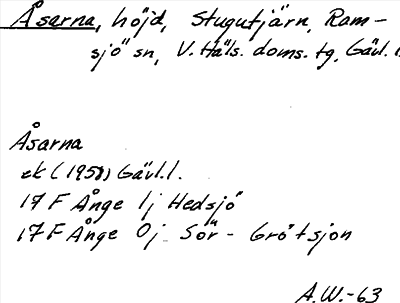 Åsarna, höjd, Stugutjärn, Ram-
sjö sn, V. Häls. doms. tg, Gävl. l.
Åsarna
ek (1958) Gävl.l.
17 F Ånge 1j Hedsjö
17 F Ånge 0j Sör-Grötsjön
A.W.-63